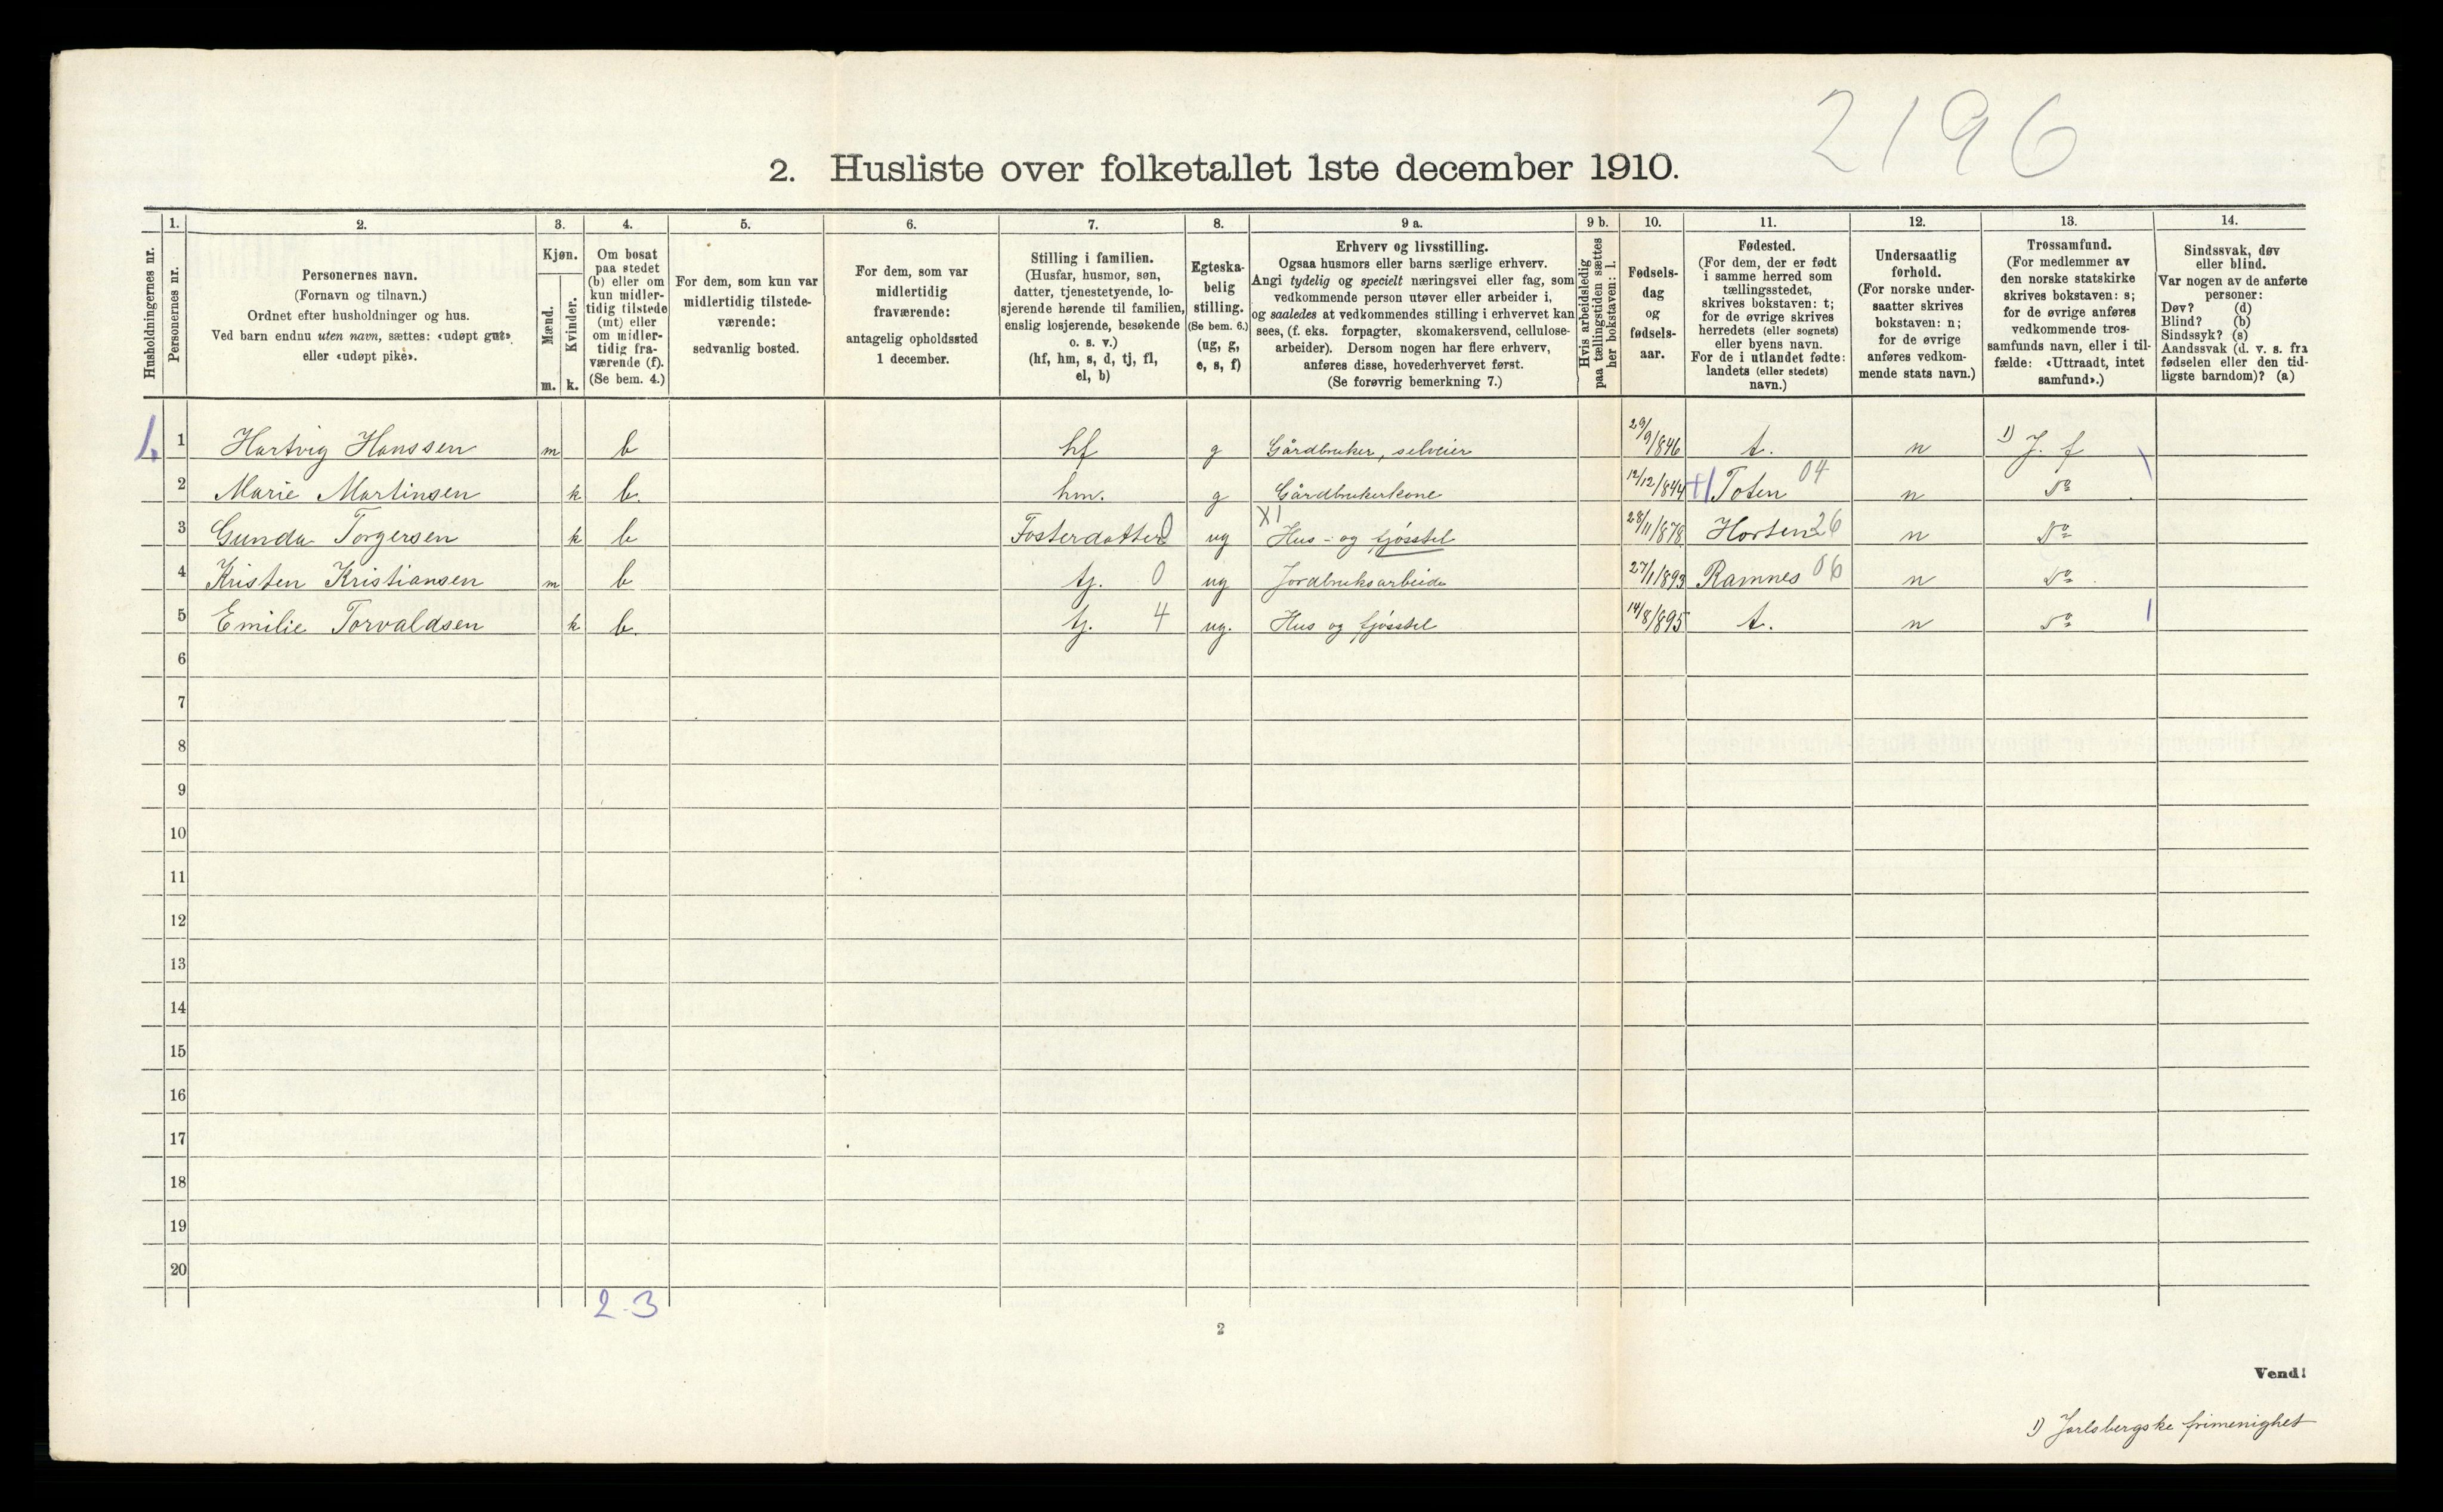 2196
2. Husliste over folketallet 1ste december 1910.
1. 2. 3. 4. 5. 6. 7. 8. 9 a. 9 b. 10. 11. 12. 13. 14.
Husholdningernes nr.
Personernes nr.
Personernes navn.
(Fornavn og tilnavn.)
Ordnet efter husholdninger og hus.
Ved barn endnu uten navn, sættes: «udøpt gut»
eller «udøpt pike».
Kjøn.
Mænd.
Kvinder.
m. k.
Om bosat
paa stedet
(b) eller om
kun midler-
tidig tilstede
(mt) eller
om midler-
tidig fra-
værende (f).
(Se bem. 4.)
For dem, som kun var
midlertidig tilstede-
værende:
sedvanlig bosted.
For dem, som var
midlertidig
fraværende:
antagelig opholdssted
1 december.
Stilling i familien.
(Husfar, husmor, søn,
datter, tjenestetyende, lo-
sjerende hørende til familien,
enslig losjerende, besøkende
o. s. v.)
(hf, hm, s, d, tj, fl,
el, b)
Egteska-
belig
stilling.
(Se bem. 6.)
(ug, g,
e, s, f)
Erhverv og livsstilling.
Ogsaa husmors eller barns særlige erhverv.
Angi tydelig og specielt næringsvei eller fag, som
vedkommende person utøver eller arbeider i,
og saaledes at vedkommendes stilling i erhvervet kan
sees, (f. eks. forpagter, skomakersvend, cellulose-
arbeider). Dersom nogen har flere erhverv,
anføres disse, hovederhvervet først.
(Se forøvrig bemerkning 7.)
Hvis arbeidsledig
paa tællingstiden sættes
her bokstaven: l.
Fødsels-
dag
og
fødsels-
aar.
Fødested.
(For dem, der er født
i samme herred som
tællingsstedet,
skrives bokstaven: t;
for de øvrige skrives
herredets (eller sognets)
eller byens navn.
For de i utlandet fødte:
landets (eller stedets)
navn.)
Undersaatlig
forhold.
(For norske under-
saatter skrives
bokstaven: n;
for de øvrige
anføres vedkom-
mende stats navn.)
Trossamfund.
(For medlemmer av
den norske statskirke
skrives bokstaven: s;
for de øvrige anføres
vedkommende tros-
samfunds navn, eller i til-
fælde: «Uttraadt, intet
samfund».)
Sindssvak, døv
eller blind.
Var nogen av de anførte
personer:
Døv? (d)
Blind? (b)
Sindssyk? (s)
Aandssvak (d. v. s. fra
fødselen eller den tid-
ligste barndom)? (a)
1. 1 Hartvig Hanssen m b hf g Gårdbruker, selveier 29/9/846 t. n 1) J. f
2 Marie Martinsen k b. hm. g Gårdbrukerkone 12/12/844 Toten 04 n Do
3 Gunda Torgersen k b Fosterdatter 0 ug X1 Hus- og fjósstel 28/11/878 Horten 26 n Do
4 Kristen Kristiansen m b tj. 0 ug Jordbruksarbeide 27/1/893 Ramnes 06 n Do
5 Emilie Torvaldsen k b. tj. 4 ug. Hus og fjósstel 14/8/895 t. n Do
6
7
8
9
10
11
12
13
14
15
16
17
18
19
20
2-3
2
Vend!
1) Jarlsbergske frimenighet